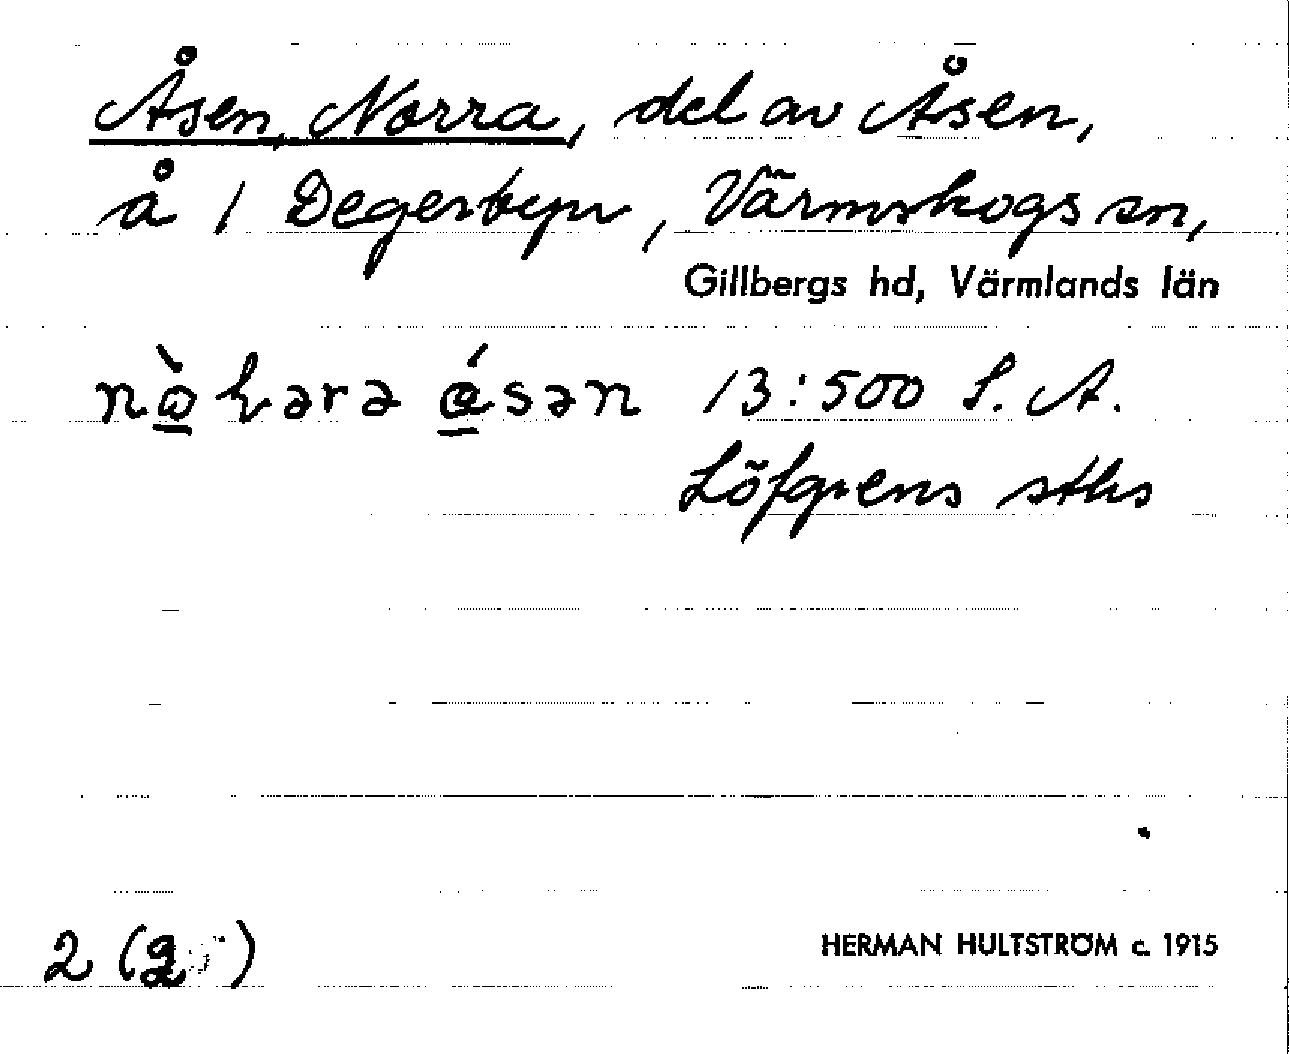 Åsen, Norra, del av Åsen,
å 1 Degerbyn, Värmskogs sn,
Gillbergs hd, Värmlands län
13:500 S. A.
Löfgrens sths
2 (2)
HERMAN HULTSTRÖM c. 1915